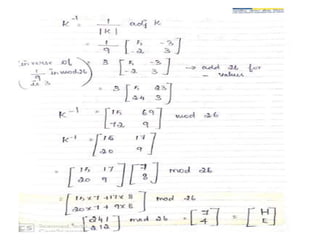 K⁻¹ = 1/|K| adj K
= 1/9 [5 -3
-2 3]
(inverse of 1/9 in mod 26 3) = 3 [5 -3
-2 3] → add 26 for - values
= 3 [5 23
24 3]
K⁻¹ = [15 69
72 9] mod 26
K⁻¹ = [15 17
20 9]
= [15 17
20 9] [7
8] mod 26
= [15×7+17×8
20×7+9×8] mod 26
= [241
212] mod 26 = [7
4] = [H
E]